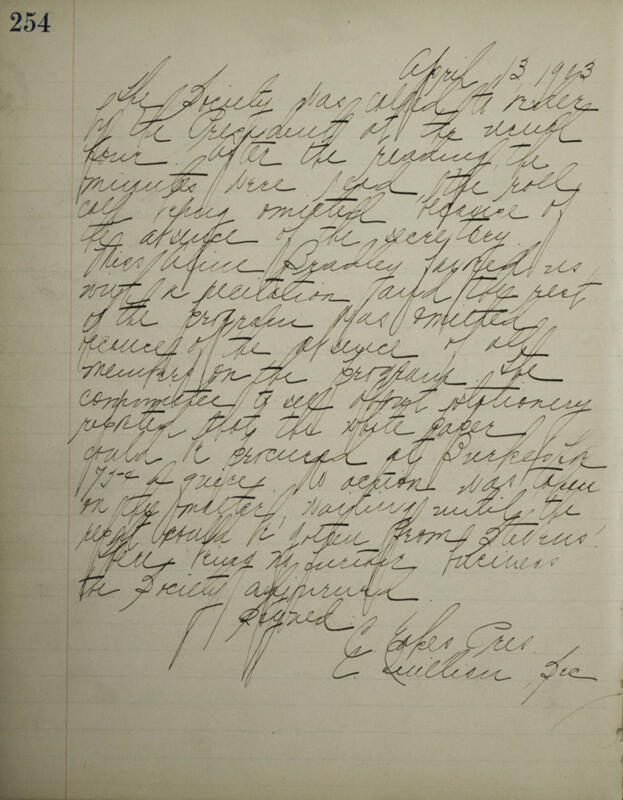 254
April 13 1903
The Society was called to order
by the President at the usual
hour. After the reading the
minutes were read the roll
call being omitted because of
the absence of the secretary.
Miss Bradley favored us
with a recitation and the rest
of the program was omitted
because of the absence of all
members on the program. The
committee to see about stationery
reported that the white paper
could be procured at for
75¢ a quire. No action was taken
on the matter waiting until the
rest could be gotten from
There being no further business
the Society adjourned
Signed
C. Eakes Pres.
E. Quillian, Sec